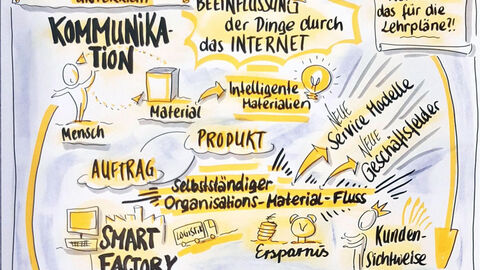 KOMMUNIKA-
TION
BEEINFLUSSUNG
der Dinge durch
das INTERNET
das für die
Lehrpläne?!
Mensch
Material
Intelligente
Materialien
NEUE
Service Modelle
NEUE
Geschäftsfelder
PRODUKT
AUFTRAG
Selbstständiger
Organisations-Material-Fluss
SMART
FACTORY
LOGISTIK
Ersparnis
Kunden-
Sichtweise